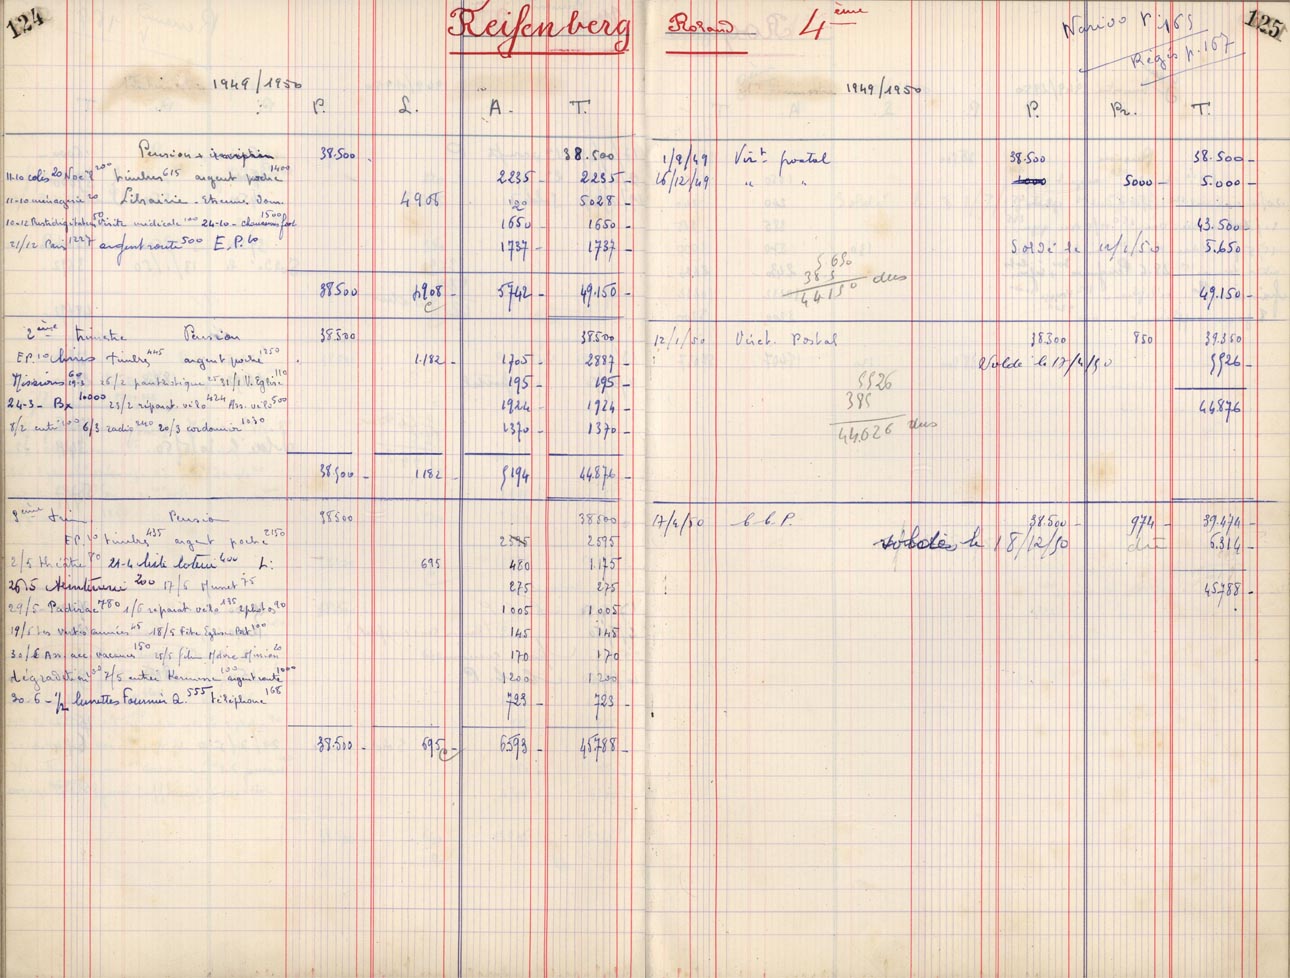 124
Reisenberg
1949/1950
P. L. A. T.
Pension + inscription 38.500 38.500
11-10 colis 20 Noël 200 timbres 615 argent poche 1400 2235 2235
11-10 ménagerie 20 Librairie - Etienne Dom. 4908 120 5028
10-12 Prestidigitateur 50 Visite médicale 100 24-10 - chaussons foot 1500 1650 1650
21/12 Car 1227 argent route 500 E.P. 10 1737 1737
38.500 4908 5742 49.150
2ème trimestre Pension 38.500 38.500
E.P. 10 livres timbres 445 argent poche 1250 1.182 1705 2887
Missions 60 26/2 fantastique 25 31/1 V. Eglise 110 195 195
24-3 - Bx 1000 23/2 réparat. vélo 424 Ass. vélo 500 1924 1924
8/2 100 6/3 radio 240 20/3 cordonnier 1030 1370 1370
38.500 1.182 5194 44.876
3ème trim Pension 38500 38500
E.P. 10 timbres 435 argent poche 2150 2595 2595
2/5 théâtre 80 21-4 liste loterie 400 L: 695 480 1.175
26.5 200 17/5 Muret 75 275 275
29/5 Padirac 780 1/6 réparat vélo 135 2 photos 90 1005 1005
19/6 Les vertes années 45 18/5 Fête Eglise Bat 100 145 145
30/6 Ass. acc. vacances 150 25/5 film Mission 20 170 170
dégradation 100 7/5 entrée Kermesse 100 argent route 1000 1200 1200
30-6 - 1/2 lunettes Fournier Q. 555 téléphone 168 723 723
38.500 695 6593 45788
Roland 4ème
125
Régis p. 167
1949/1950
P. Pr. T.
1/9/49 Virt postal 38.500 38.500
16/12/49 " " 5000 5.000
43.500
Soldé le 12/1/50 5.650
5650
385
44150 dus
49.150
12/1/50 Virct. Postal 38.500 850 39.350
Solde le 17/4/50 5526
5526
385
44.026 dus
44876
17/4/50 C.C.P. 38.500 974 39.474
soldés le 18/12/50 dû 6.314
45788